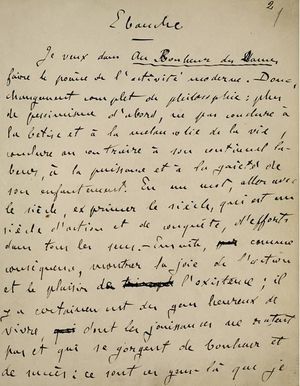 2
Ebauche
Je veux dans Au Bonheur des Dames
faire le poème de l'activité moderne. Donc,
changement complet de philosophie: plus
de pessimisme d'abord, ne pas conclure à
la bêtise et à la mélancolie de la vie,
conclure au contraire à son continuel la-
beur, à la puissance et à la gaieté de
son enfantement. En un mot, aller avec
le siècle, exprimer le siècle, qui est un
siècle d'action et de conquête, d'efforts
dans tous les sens. - Ensuite, comme
conséquence, montrer la joie de l'action
et le plaisir de l'existence; il
y a certainement des gens heureux de
vivre dont les jouissances ne ratent
pas et qui se gorgent de bonheur et
de succès: ce sont ces gens-là que je